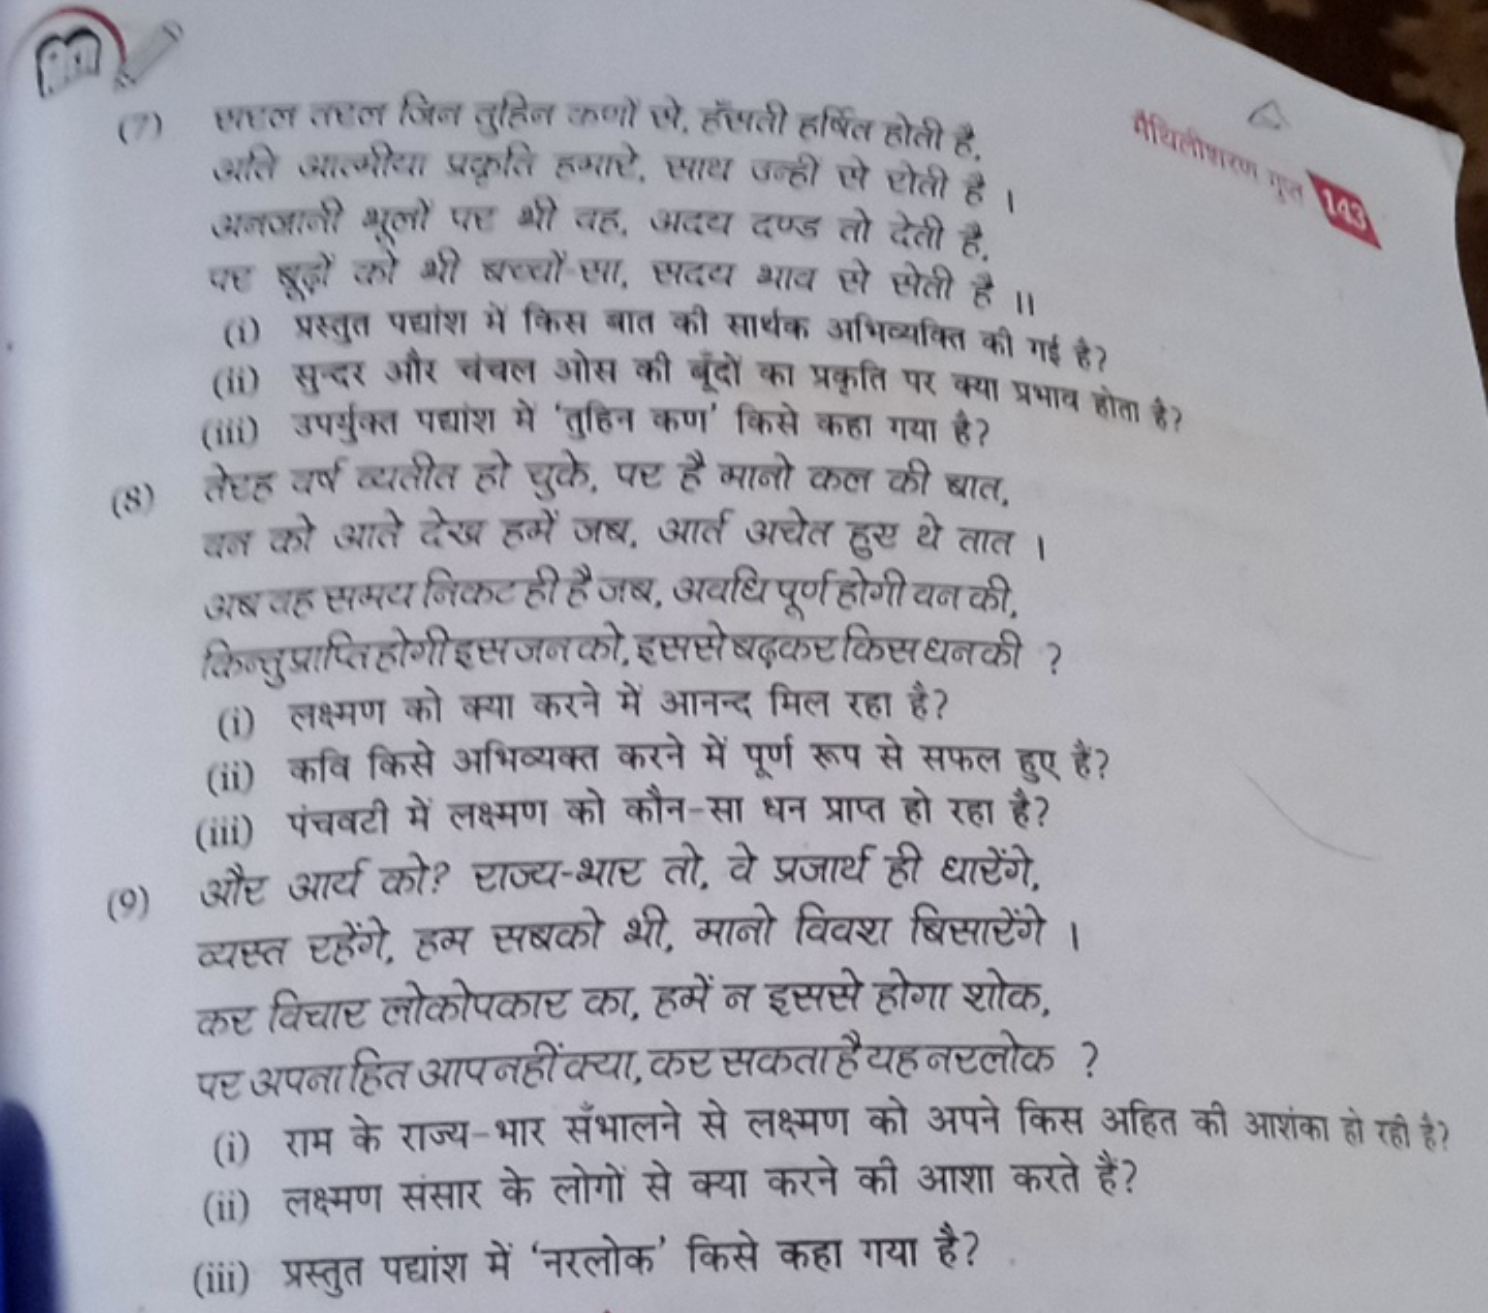 मैथिलीशरण गुप्त 143
(7) सरल तरल जिन तुहिन कणों से, हँसती हर्षित होती है,
अति आत्मीया प्रकृति हमारे, साथ उन्हीं से रोती है ।
अनजानी भूलों पर भी वह, अदय दण्ड तो देती है,
पर बूढ़ों को भी बच्चों-सा, सदय भाव से सेती है ।।
(i) प्रस्तुत पद्यांश में किस बात की सार्थक अभिव्यक्ति की गई है?
(ii) सुन्दर और चंचल ओस की बूँदों का प्रकृति पर क्या प्रभाव होता है?
(iii) उपर्युक्त पद्यांश में ‘तुहिन कण’ किसे कहा गया है?
(8) तेरह वर्ष व्यतीत हो चुके, पर है मानो कल की बात,
वन को आते देख हमें जब, आर्त अचेत हुए थे तात ।
अब वह समय निकट ही है जब, अवधि पूर्ण होगी वन की,
किन्तु प्राप्ति होगी इस जन को, इससे बढ़कर किस धन की ?
(i) लक्ष्मण को क्या करने में आनन्द मिल रहा है?
(ii) कवि किसे अभिव्यक्त करने में पूर्ण रूप से सफल हुए हैं?
(iii) पंचवटी में लक्ष्मण को कौन-सा धन प्राप्त हो रहा है?
(9) और आर्य को? राज्य-भार तो, वे प्रजार्थ ही धारेंगे,
व्यस्त रहेंगे, हम सबको भी, मानो विवश बिसारेंगे ।
कर विचार लोकोपकार का, हमें न इससे होगा शोक,
पर अपना हित आप नहीं क्या, कर सकता है यह नरलोक ?
(i) राम के राज्य-भार सँभालने से लक्ष्मण को अपने किस अहित की आशंका हो रही है?
(ii) लक्ष्मण संसार के लोगों से क्या करने की आशा करते हैं?
(iii) प्रस्तुत पद्यांश में ‘नरलोक’ किसे कहा गया है?